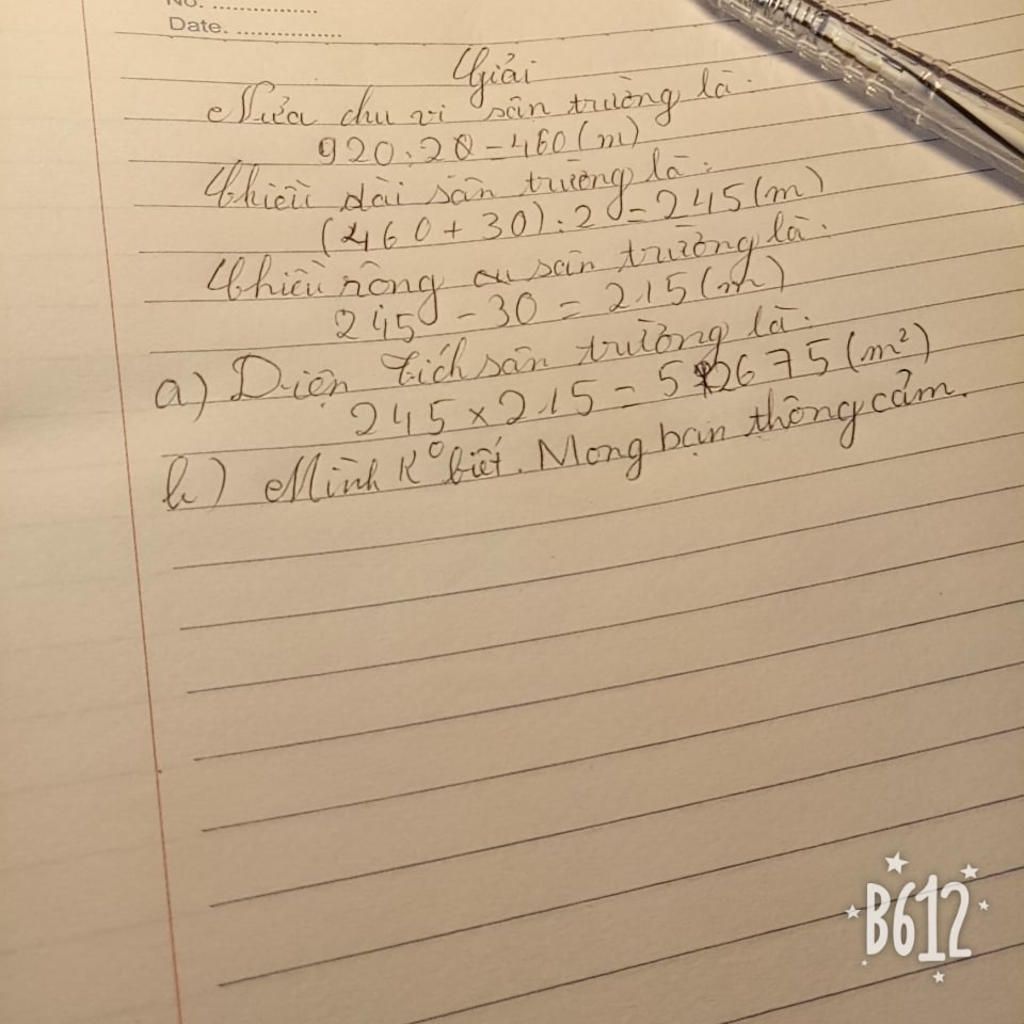 No. ................
Date. ................
Giải
Nửa chu vi sân trường là:
920:2 = 460 (m)
Chiều dài sân trường là:
(460 + 30) : 2 = 245 (m)
Chiều rộng sân trường là:
245 - 30 = 215 (m)
a) Diện tích sân trường là:
245 × 215 = 52675 (m²)
b) Mình K° biết. Mong bạn thông cảm.
B612